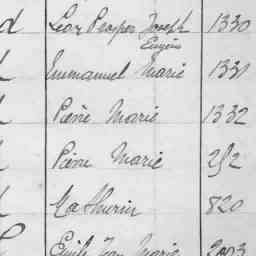 d Léon Prosper Joseph 1330
Eugène
Emmanuel Marie 1331
Pierre Marie 1332
Pierre Marie 252
Mathurin 820
Emile Jean Marie 2003